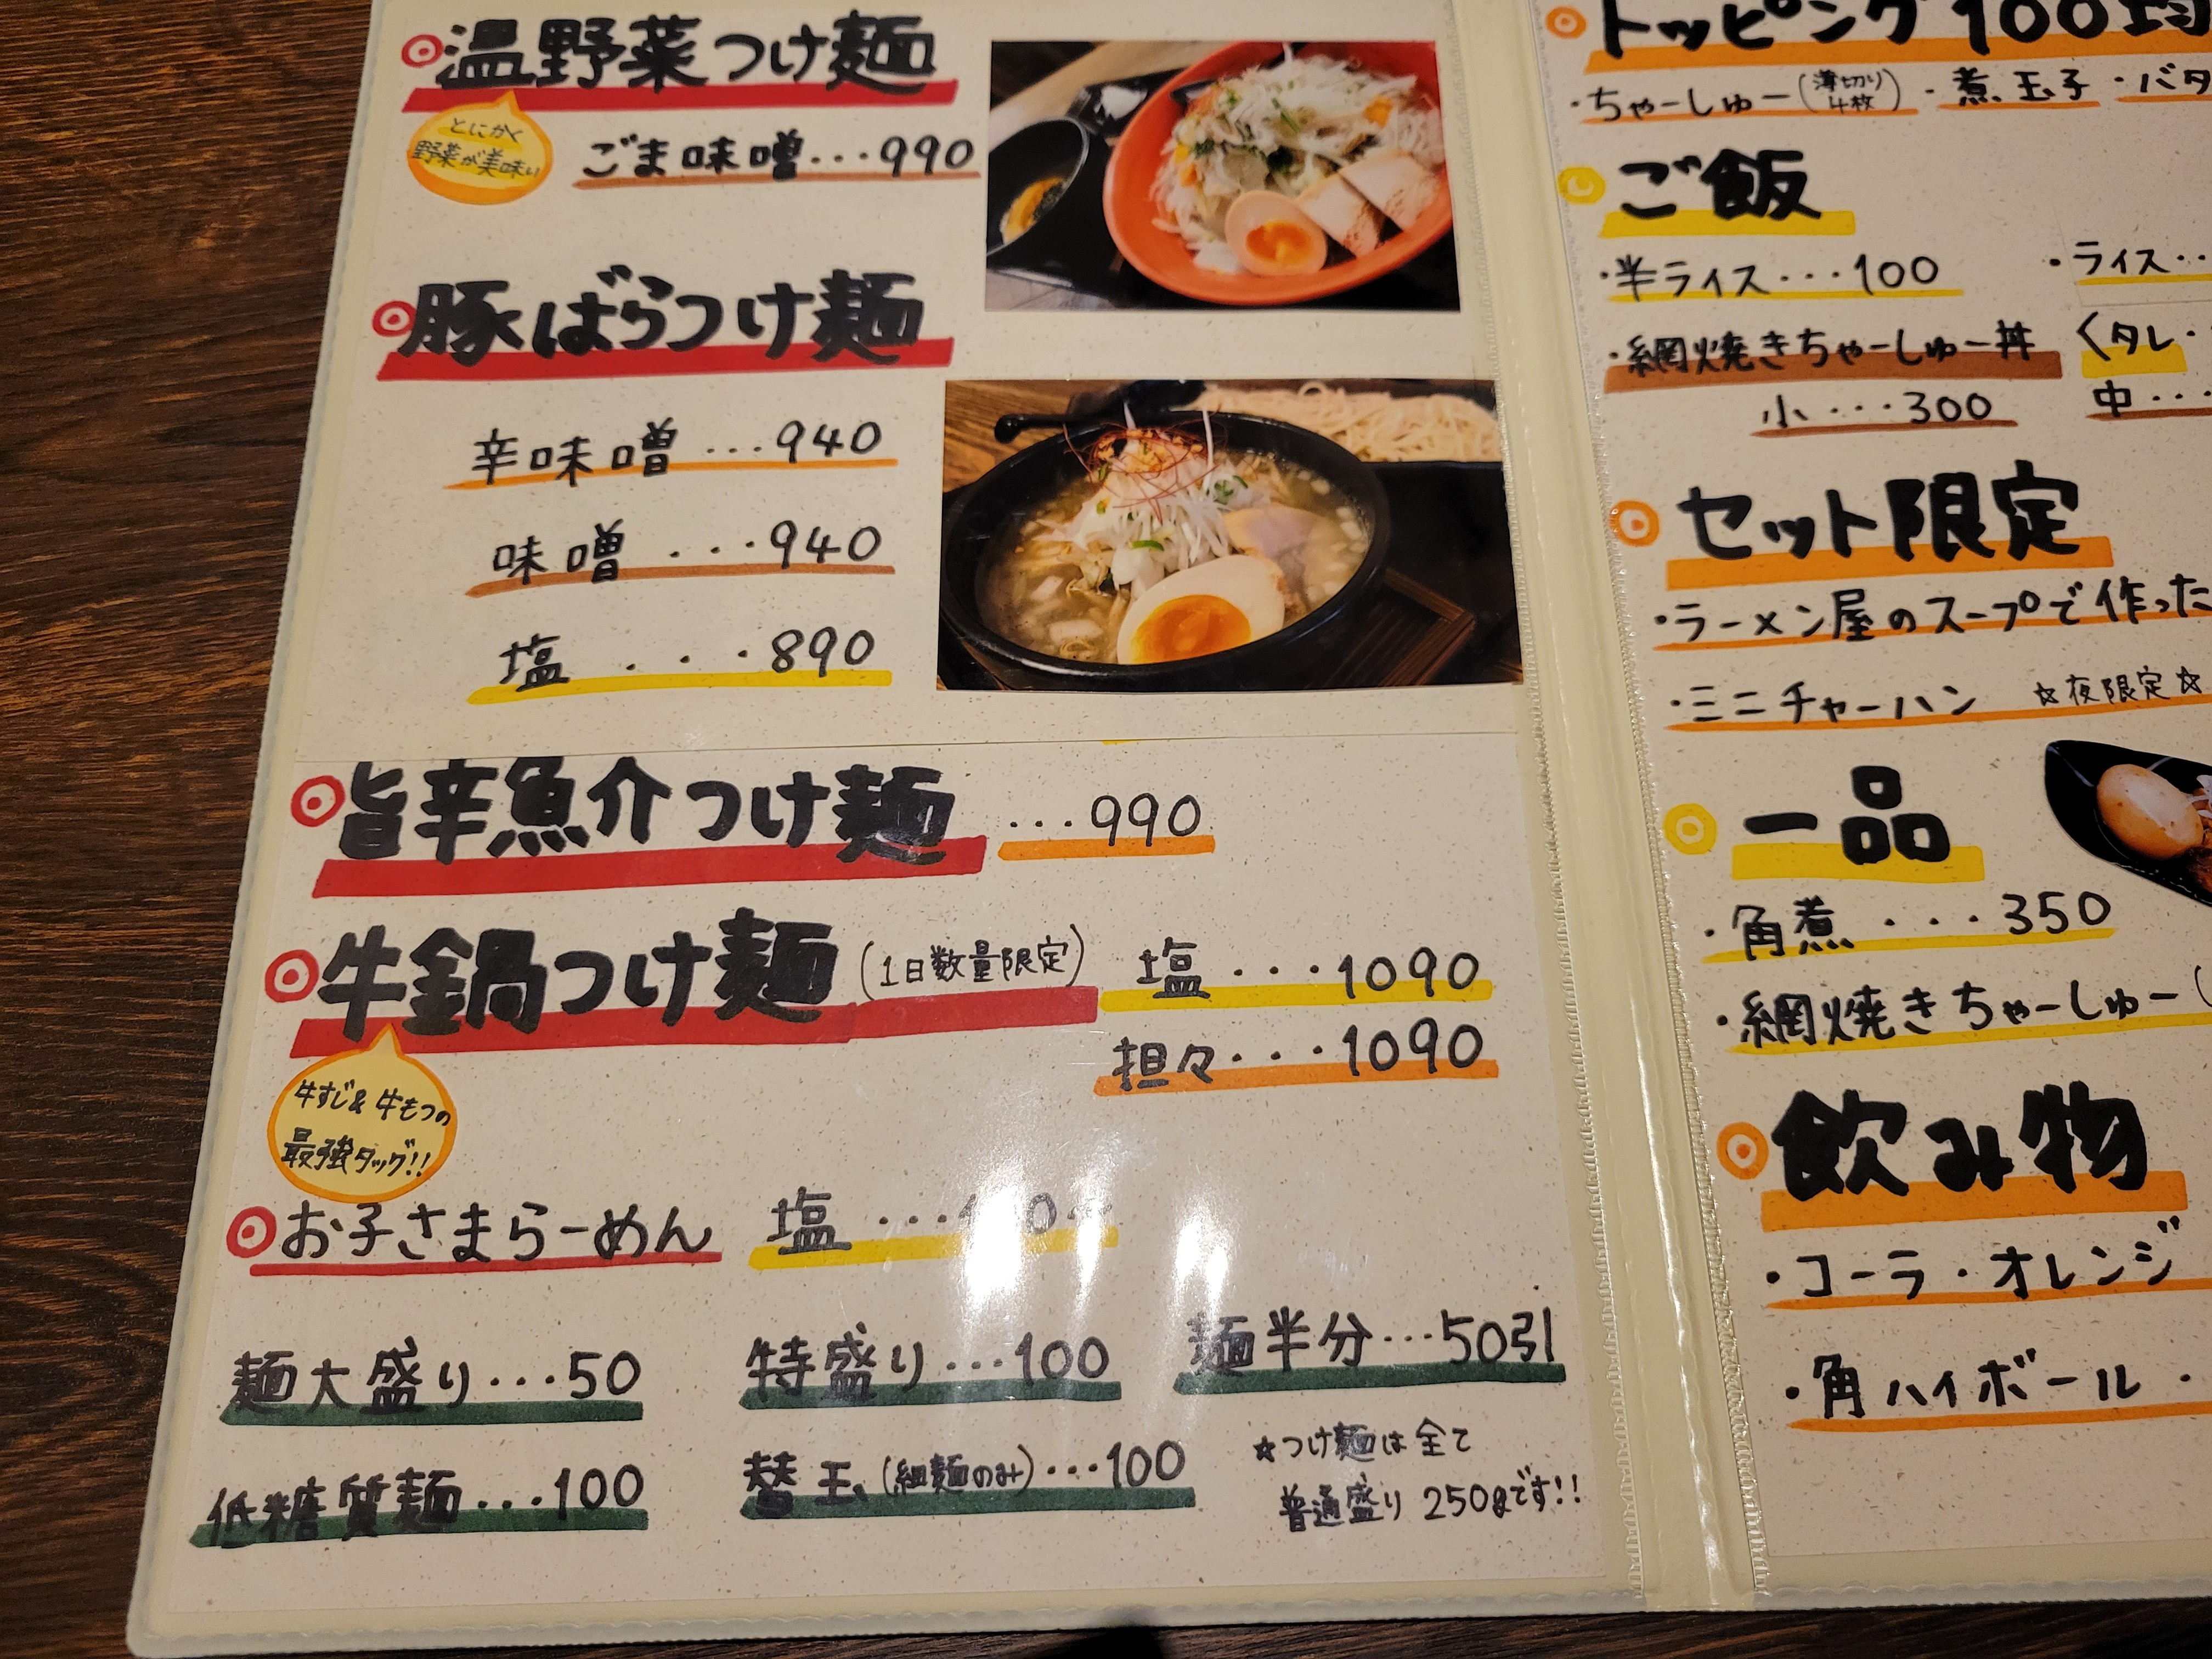 温野菜つけ麺
とにかく
野菜が美味い
ごま味噌…990
豚ばらつけ麺
辛味噌…940
味噌…940
塩…890
旨辛魚介つけ麺…990
牛鍋つけ麺(1日数量限定)
塩…1090
担々…1090
牛すじ&牛もつの
最強タッグ!!
お子さまらーめん 塩
麺大盛り…50
特盛り…100
麺半分…50引
低糖質麺…100
替玉(細麺のみ)…100
☆つけ麺は全て
普通盛り250gです!!
トッピング100均
・ちゃーしゅー(薄切り4枚)・煮玉子・バタ
ご飯
・半ライス…100
・ライス…
・網焼きちゃーしゅー丼
〈タレ・
小…300
中…
セット限定
・ラーメン屋のスープで作った
・ミニチャーハン ☆夜限定☆
一品
・角煮…350
・網焼きちゃーしゅー(
飲み物
・コーラ・オレンジ
・角ハイボール・